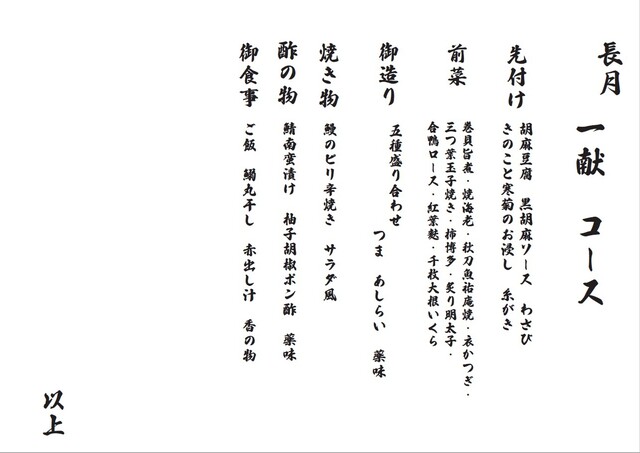 長月
一献 コース
先付け
胡麻豆腐 黒胡麻ソース わさび
きのこと寒菊のお浸し 糸がき
前菜
巻貝旨煮・焼海老・秋刀魚祐庵焼・衣かつぎ・
三つ葉玉子焼き・柿博多・炙り明太子・
合鴨ロース・紅葉麩・千枚大根いくら
御造り
五種盛り合わせ
つま あしらい 薬味
焼き物
鰻のピリ辛焼き サラダ風
酢の物
鯖南蛮漬け 柚子胡椒ポン酢 薬味
御食事
ご飯 鰯丸干し 赤出し汁 香の物
以上